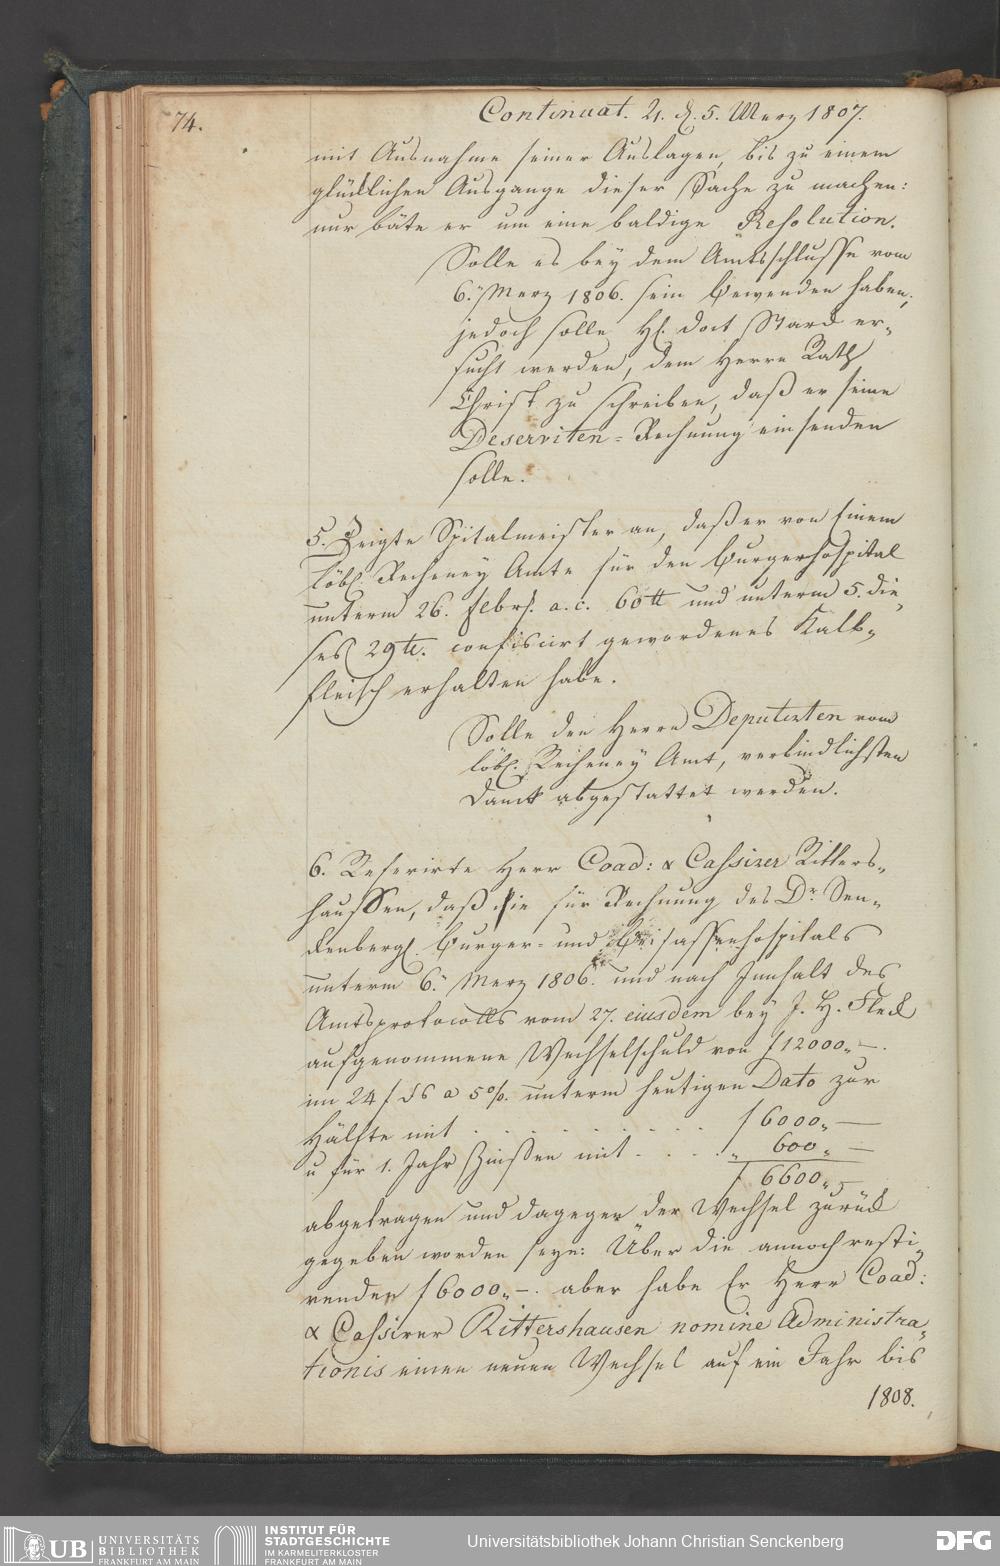 74.
Continuat. 21. d. 5. Merz 1807.
mit Ausnahme seiner Auslagen, bis zu einem
glücklichen Ausgange dieser Sache zu machen:
nur bäte er um eine baldige Resolution.
Solle es bey dem Amtsschlusse vom
6. Merz 1806. sein Bewenden haben,
jedoch solle H. Doct Starck er-
sucht werden, dem Herrn Rath
Christ zu schreiben, daß er seine
Deserviten-Rechnung einsenden
solle.
5. Zeigte Spitalmeister an, daß er von Einem
löbl. Recheney Amte für den Burgerhospital
unterm 26. Febr. a. c. 60 ℔ und unterm 5. die-
ses 29 ℔. confiscirt gewordenes Kalb-
fleisch erhalten habe.
Solle den Herrn Deputirten vom
löbl. Recheney Amt, verbindlichsten
Danck abgestattet werden.
6. Referirte Herr Coad: & Cassirer Ritters-
haussen, daß die für Rechnung des Dr. Sen-
ckenbergl. Burger- und Beisassenhospitals
unterm 6. Merz 1806. und nach Innhalt des
Amtsprotocolls vom 27. eiusdem bey J. H. Fleck
aufgenommene Wechselschuld von f 12000,,—.
im 24 f a 5 %. unterm heutigen Dato zur
Hälfte mit . . . . . . . . f 6000,,—
u für 1. Jahr Zinßen mit . . . . ,, 600,,—
f 6600,,
abgetragen und dagegen der Wechsel zurück
gegeben worden seye: Über die annoch resti-
renden f 6000,,—. aber habe Er Herr Coad:
& Cassirer Rittershausen nomine Administra-
tionis einen neuen Wechsel auf ein Jahr bis
1808.
UB UNIVERSITÄTS
BIBLIOTHEK
FRANKFURT AM MAIN
INSTITUT FÜR
STADTGESCHICHTE
IM KARMELITERKLOSTER
FRANKFURT AM MAIN
Universitätsbibliothek Johann Christian Senckenberg
DFG